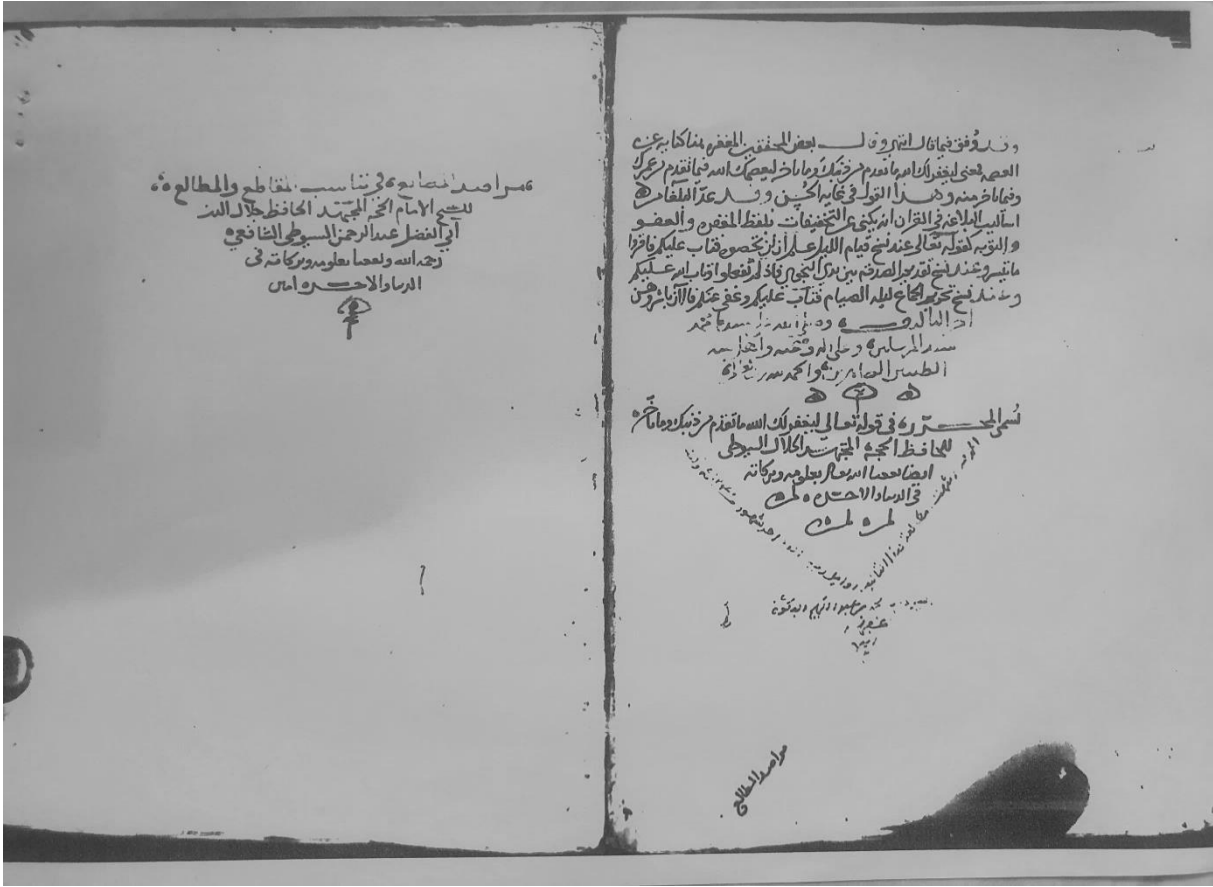 وقد وُفق فيما قال انتهى وقال بعض المحققين المغفره هنا كنايه عن
العصمه فمعنى ليغفر لك الله ما تقدم من ذنبك وما تاخر ليعصمك الله فيما تقدم من عمرك
وفيما تاخر منه وهذا القول فى غايه الحُسن وقد عدّ البلغا من
اساليب البلاغه فى القران انه يكنى عن التخفيفات بلفظ المغفره والعفو
والتوبه كقوله تعالى عند نسخ قيام الليل علم ان لن تحصوه فتاب عليكم فاقروا
ما تيسر وعند نسخ تقديم الصدقه بين يدى النجوى فاذ لم تفعلوا وتاب الله عليكم
وعند نسخ تحريم الجماع ليله الصيام فتاب عليكم وعفى عنكم فالآن باشروهن
سيدنا محمد
سيد المرسلين وعلى اله وصحبه
الطيبين الطاهرين والحمد لله
تُسمى المحررة فى قوله تعالى ليغفر لك الله ما تقدم من ذنبك وما تاخّر
للحافظ الحجه المجتهد الجلال السيوطى
ايضا نفعنا الله تعالى بعلومه وبركاته
فى الدنيا والاخره
مراصد المطالع
مراصد المطالع فى تناسب المقاطع والمطالع
للشيخ الامام الحجه المجتهد الحافظ جلال الدين
أبى الفضل عبد الرحمن السيوطى الشافعى
رحمه الله ونفعنا بعلومه وبركاته فى
الدنيا والاخره امين